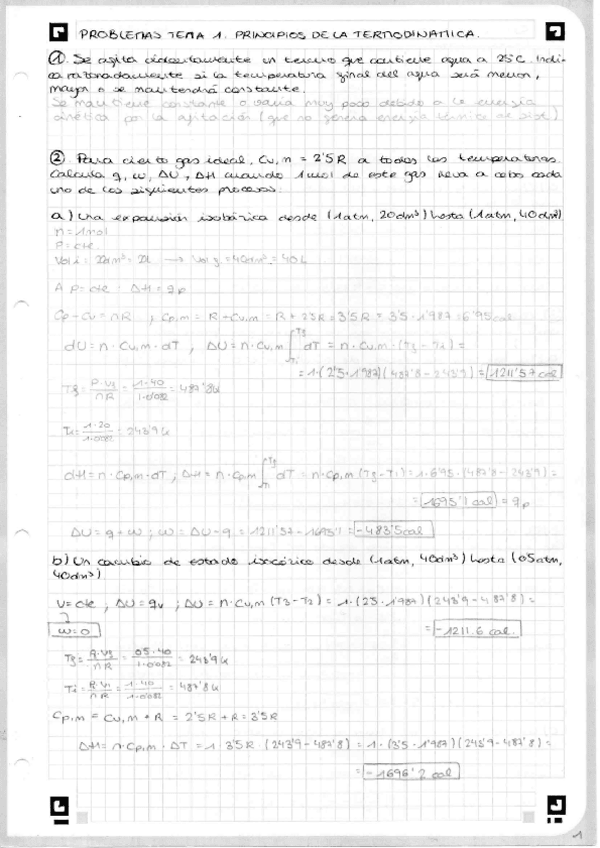 PROBLEMAS TEMA 1. PRINCIPIOS DE LA TERMODINÁMICA.
① Se agita violentamente un termo que contiene agua a 25°C. Indi-
ca razonadamente si la temperatura final del agua será menor,
mayor o se mantendrá constante.
Se mantiene constante o varía muy poco debido a la energía
cinética por la agitación (que no genera energía térmica de sist)
② Para cierto gas ideal, Cv,m = 2'5R a todas las temperaturas.
Calcula q, w, ΔU, ΔH cuando 1mol de este gas lleva a cabo cada
uno de los siguientes procesos:
a) Una expansión isobárica desde (1atm, 20dm³) hasta (1atm, 40dm³)
n = 1mol
P = cte
Vol i = 20dm³ = 20L → Vol f = 40dm³ = 40L
A p = cte · ΔH = qp
Cp - Cv = nR ; Cp,m = R + Cv,m = R + 2'5R = 3'5R = 3'5 · 1'987 = 6'95cal
dU = n · Cv,m · dT , ΔU = n · Cv,m ∫ Ti Tf dT = n · Cv,m · (Tf - Ti) =
= 1 · (2'5 · 1'987) (487'8 - 243'9) = 1211'57 cal
Tf = P · Vf / nR = 1 · 40 / 1 · 0'082 = 487'8K
Ti = 1 · 20 / 1 · 0'082 = 243'9 K
dH = n · Cp,m · dT ; ΔH = n · Cp,m ∫ Ti Tf dT = n · Cp,m (Tf - Ti) = 1 · 6'95 · (487'8 - 243'9) =
= 1695'1 cal = qp
ΔU = q + w ; w = ΔU - q = 1211'57 - 1695'1 = -483'5cal
b) Un cambio de estado isocórico desde (1atm, 40dm³) hasta (0'5atm,
40dm³)
V = cte , ΔU = qv ; ΔU = n · Cv,m (T3 - T2) = 1 · (2'5 · 1'987) (243'9 - 487'8) =
w = 0
= -1211.6 cal.
Tf = P · Vf / nR = 0'5 · 40 / 1 · 0'082 = 243'9 K
Ti = P · Vi / nR = 1 · 40 / 1 · 0'082 = 487'8K
Cp,m = Cv,m + R = 2'5R + R = 3'5R
ΔH = n · Cp,m · ΔT = 1 · 3'5R · (243'9 - 487'8) = 1 · (3'5 · 1'987) (243'9 - 487'8) =
= -1696'2 cal
1